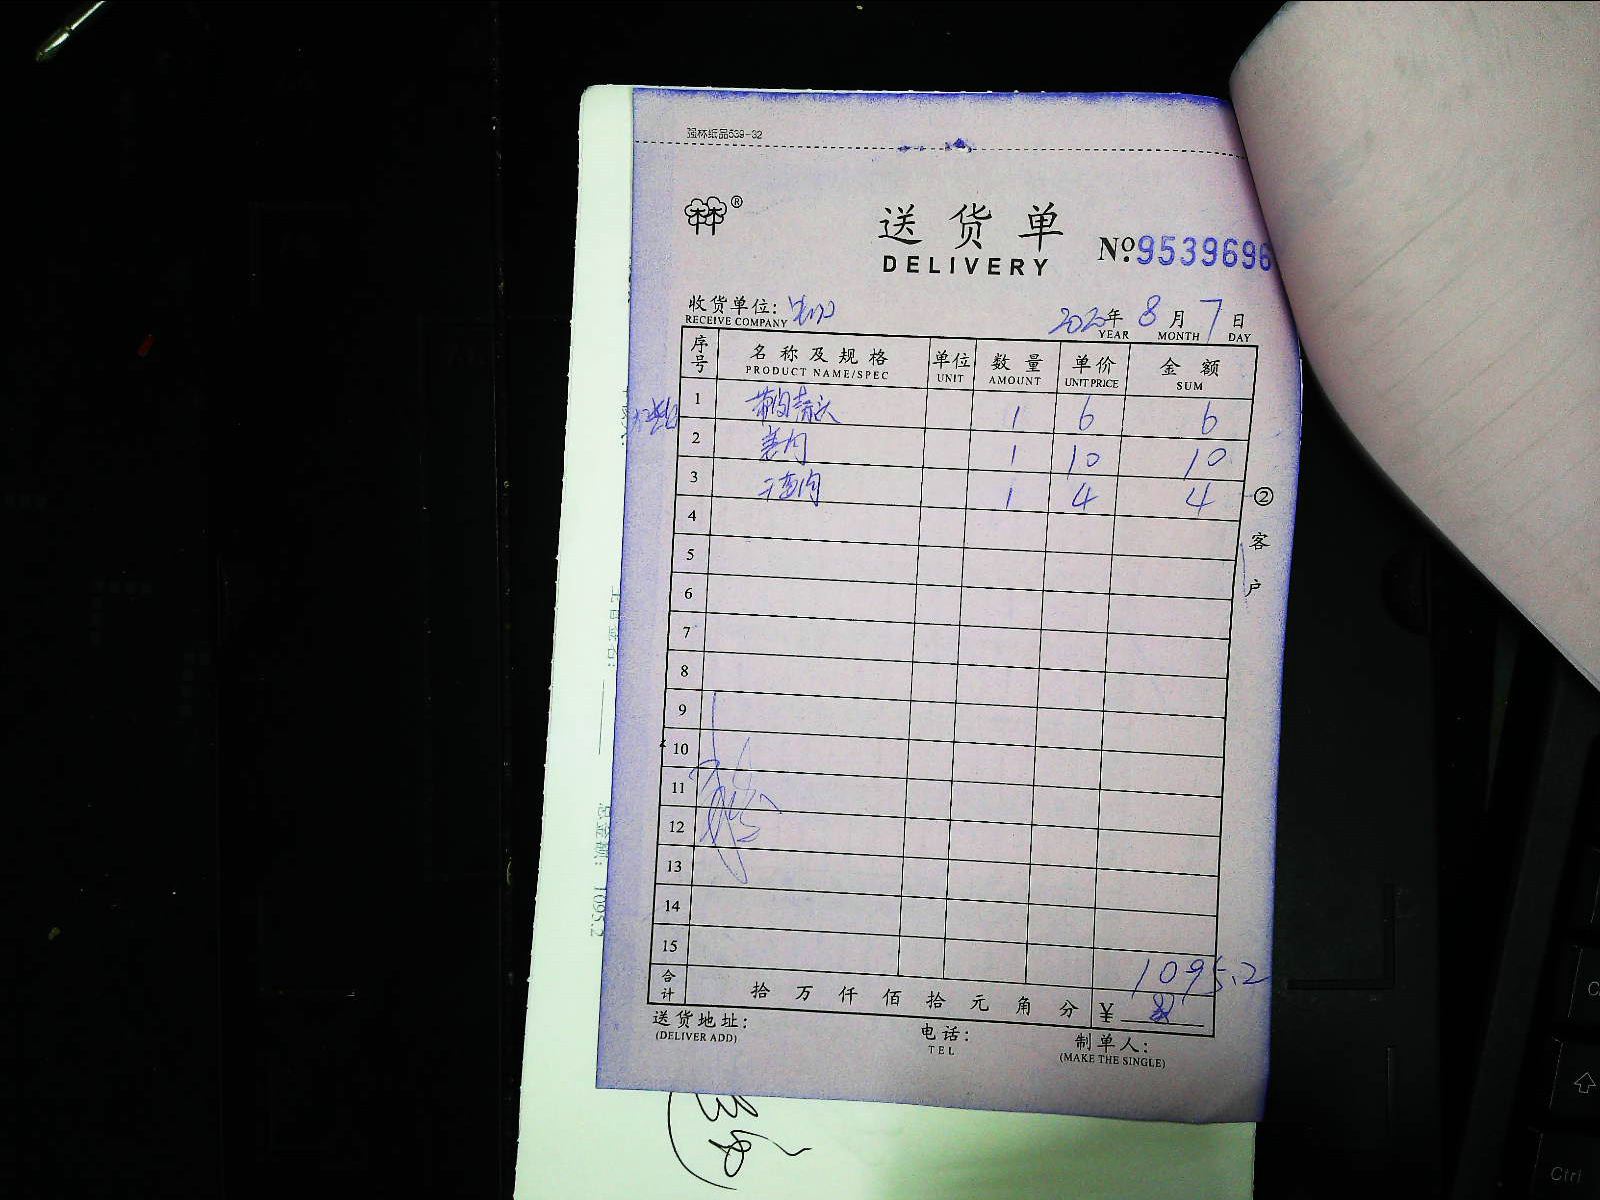 强林纸品539-32
林®
送货单
DELIVERY
№:9539696
收货单位:
RECEIVE COMPANY
2020年 8月 7日
YEAR MONTH DAY
序号 名称及规格 单位 数量 单价 金额
PRODUCT NAME/SPEC UNIT AMOUNT UNIT PRICE SUM
1 1 6 6
2 1 10 10
3 1 4 4
4
5
6
7
8
9
10
11
12
13
14
15
1095.2
合计 拾 万 仟 佰 拾 元 角 分 ¥
送货地址: 电话: 制单人:
(DELIVER ADD) TEL (MAKE THE SINGLE)
②客户
总金额: 1095.2
Ctrl